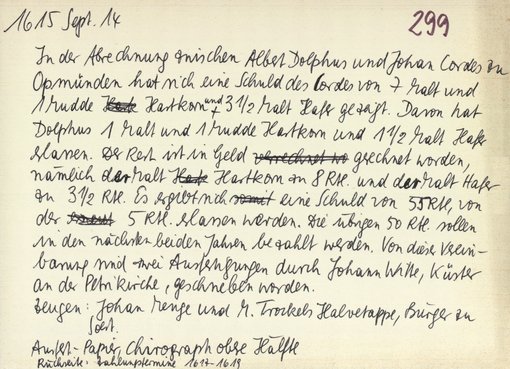 1615 Sept. 14
299
In der Abrechnung zwischen Albert Dolphus und Johan Cordes zu
Opmünden hat sich eine Schuld des Cordes von 7 Malt und
1 Mudde Hartkorn und 3 1/2 Malt Hafer gezeigt. Davon hat
Dolphus 1 Malt und 1 Mudde Hartkorn und 1 1/2 Malt Hafer
erlassen. Der Rest ist in Geld gerechnet worden,
nämlich der Malt Hartkorn zu 8 Rtl. und der Malt Hafer
zu 3 1/2 Rtl. Es ergiebt sich somit eine Schuld von 55 Rtl, von
der 5 Rtl. erlassen werden. Die übrigen 50 Rtl. sollen
in den nächsten beiden Jahren bezahlt werden. Von dieser Verein-
barung sind zwei Ausfertigungen durch Johann Witte, Küster
an der Petrikirche, geschrieben worden.
Zeugen: Johan Menge und M. Trockels Halvetappe, Bürger zu
Soest.
Ausfert. Papier, Chirograph obere Hälfte
Rückseite: Zahlungstermine 1617-1619